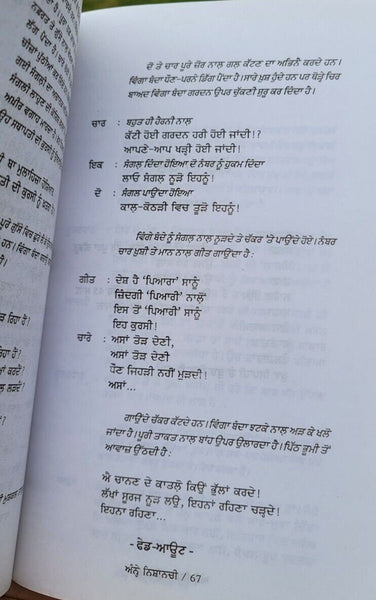 ਦੋ ਤੇ ਚਾਰ ਪੂਰੇ ਜ਼ੋਰ ਨਾਲ ਗਲ ਕੱਟਣ ਦਾ ਅਭਿਨੈ ਕਰਦੇ ਹਨ।
ਵਿੰਗਾ ਬੰਦਾ ਧੌਣ-ਪਰਨੇ ਡਿੱਗ ਪੈਂਦਾ ਹੈ। ਸਾਰੇ ਖ਼ੁਸ਼ ਹੁੰਦੇ ਹਨ ਪਰ ਥੋੜ੍ਹੇ ਚਿਰ
ਬਾਅਦ ਵਿੰਗਾ ਬੰਦਾ ਗਰਦਨ ਉਪਰ ਚੁੱਕਣੀ ਸ਼ੁਰੂ ਕਰ ਦਿੰਦਾ ਹੈ।
ਚਾਰ : ਬਹੁਤ ਹੀ ਹੈਰਨੀ ਨਾਲ
ਕੱਟੀ ਹੋਈ ਗਰਦਨ ਹਰੀ ਹੋਈ ਜਾਂਦੀ!?
ਆਪਣੇ-ਆਪ ਖੜ੍ਹੀ ਹੋਈ ਜਾਂਦੀ!
ਇਕ : ਸੰਗਲ ਦਿੰਦਾ ਹੋਇਆ ਦੋ ਨੰਬਰ ਨੂੰ ਹੁਕਮ ਦਿੰਦਾ
ਲਾਓ ਸੰਗਲ ਨੂੜੋ ਇਹਨੂੰ!
ਦੋ : ਸੰਗਲ ਪਾਉਂਦਾ ਹੋਇਆ
ਕਾਲ-ਕੋਠੜੀ ਵਿਚ ਤੂੜੋ ਇਹਨੂੰ!
ਵਿੰਗੇ ਬੰਦੇ ਨੂੰ ਸੰਗਲ ਨਾਲ ਨੂੜਦੇ ਤੇ ਚੱਕਰ 'ਤੇ ਪਾਉਂਦੇ ਹੋਏ। ਨੰਬਰ
ਚਾਰ ਖ਼ੁਸ਼ੀ ਤੇ ਮਾਨ ਨਾਲ ਗੀਤ ਗਾਉਂਦਾ ਹੈ :
ਗੀਤ : ਦੇਸ਼ ਹੈ 'ਪਿਆਰਾ' ਸਾਨੂੰ
ਜ਼ਿੰਦਗੀ 'ਪਿਆਰੀ' ਨਾਲੋਂ
ਇਸ ਤੋਂ 'ਪਿਆਰੀ' ਸਾਨੂੰ
ਇਹ ਕੁਰਸੀ!
ਚਾਰੇ : ਅਸਾਂ ਤੋੜ ਦੇਣੀ,
ਅਸਾਂ ਤੋੜ ਦੇਣੀ
ਧੌਣ ਜਿਹੜੀ ਨਹੀਂ ਮੁੜਦੀ!
ਅਸਾਂ...
ਗਾਉਂਦੇ ਚੱਕਰ ਕੱਟਦੇ ਹਨ। ਵਿੰਗਾ ਬੰਦਾ ਝਟਕੇ ਨਾਲ ਅੜ ਕੇ ਖਲੋ
ਜਾਂਦਾ ਹੈ। ਪੂਰੀ ਤਾਕਤ ਨਾਲ ਬਾਂਹ ਉਪਰ ਉਲਾਰਦਾ ਹੈ। ਪਿੱਠ ਭੂਮੀ ਤੋਂ
ਆਵਾਜ਼ ਉੱਠਦੀ ਹੈ :
ਐ ਚਾਨਣ ਦੇ ਕਾਤਲੋ ਕਿਉਂ ਭੁੱਲਾਂ ਕਰਦੇ!
ਲੱਖਾਂ ਸੂਰਜ ਨੂੜ ਲਉ, ਇਹਨਾਂ ਰਹਿਣਾ ਚੜ੍ਹਦੇ!
ਇਹਨਾ ਰਹਿਣਾ...
- ਫੇਡ-ਆਊਟ -
ਅੰਨ੍ਹੇ ਨਿਸ਼ਾਨਚੀ / 67